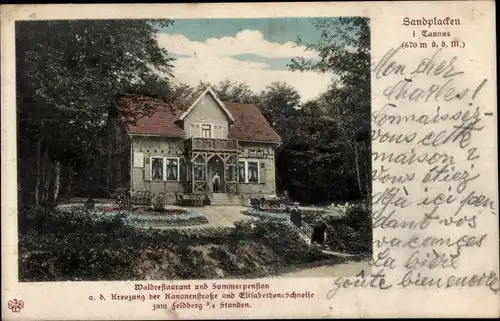 Sandplacken
i. Taunus
(670 m ü. d. M.)
Mon cher
Charles!
Connaissez
vous cette
maison?
Vous étiez
déjà ici pen
dant vos
vacances
La bière
goûte bien encore
Waldrestaurant und Sommerpension
a. d. Kreuzung der Kanonenstraße und Elisabethen-Schneise
zum Feldberg ¾ Stunden.